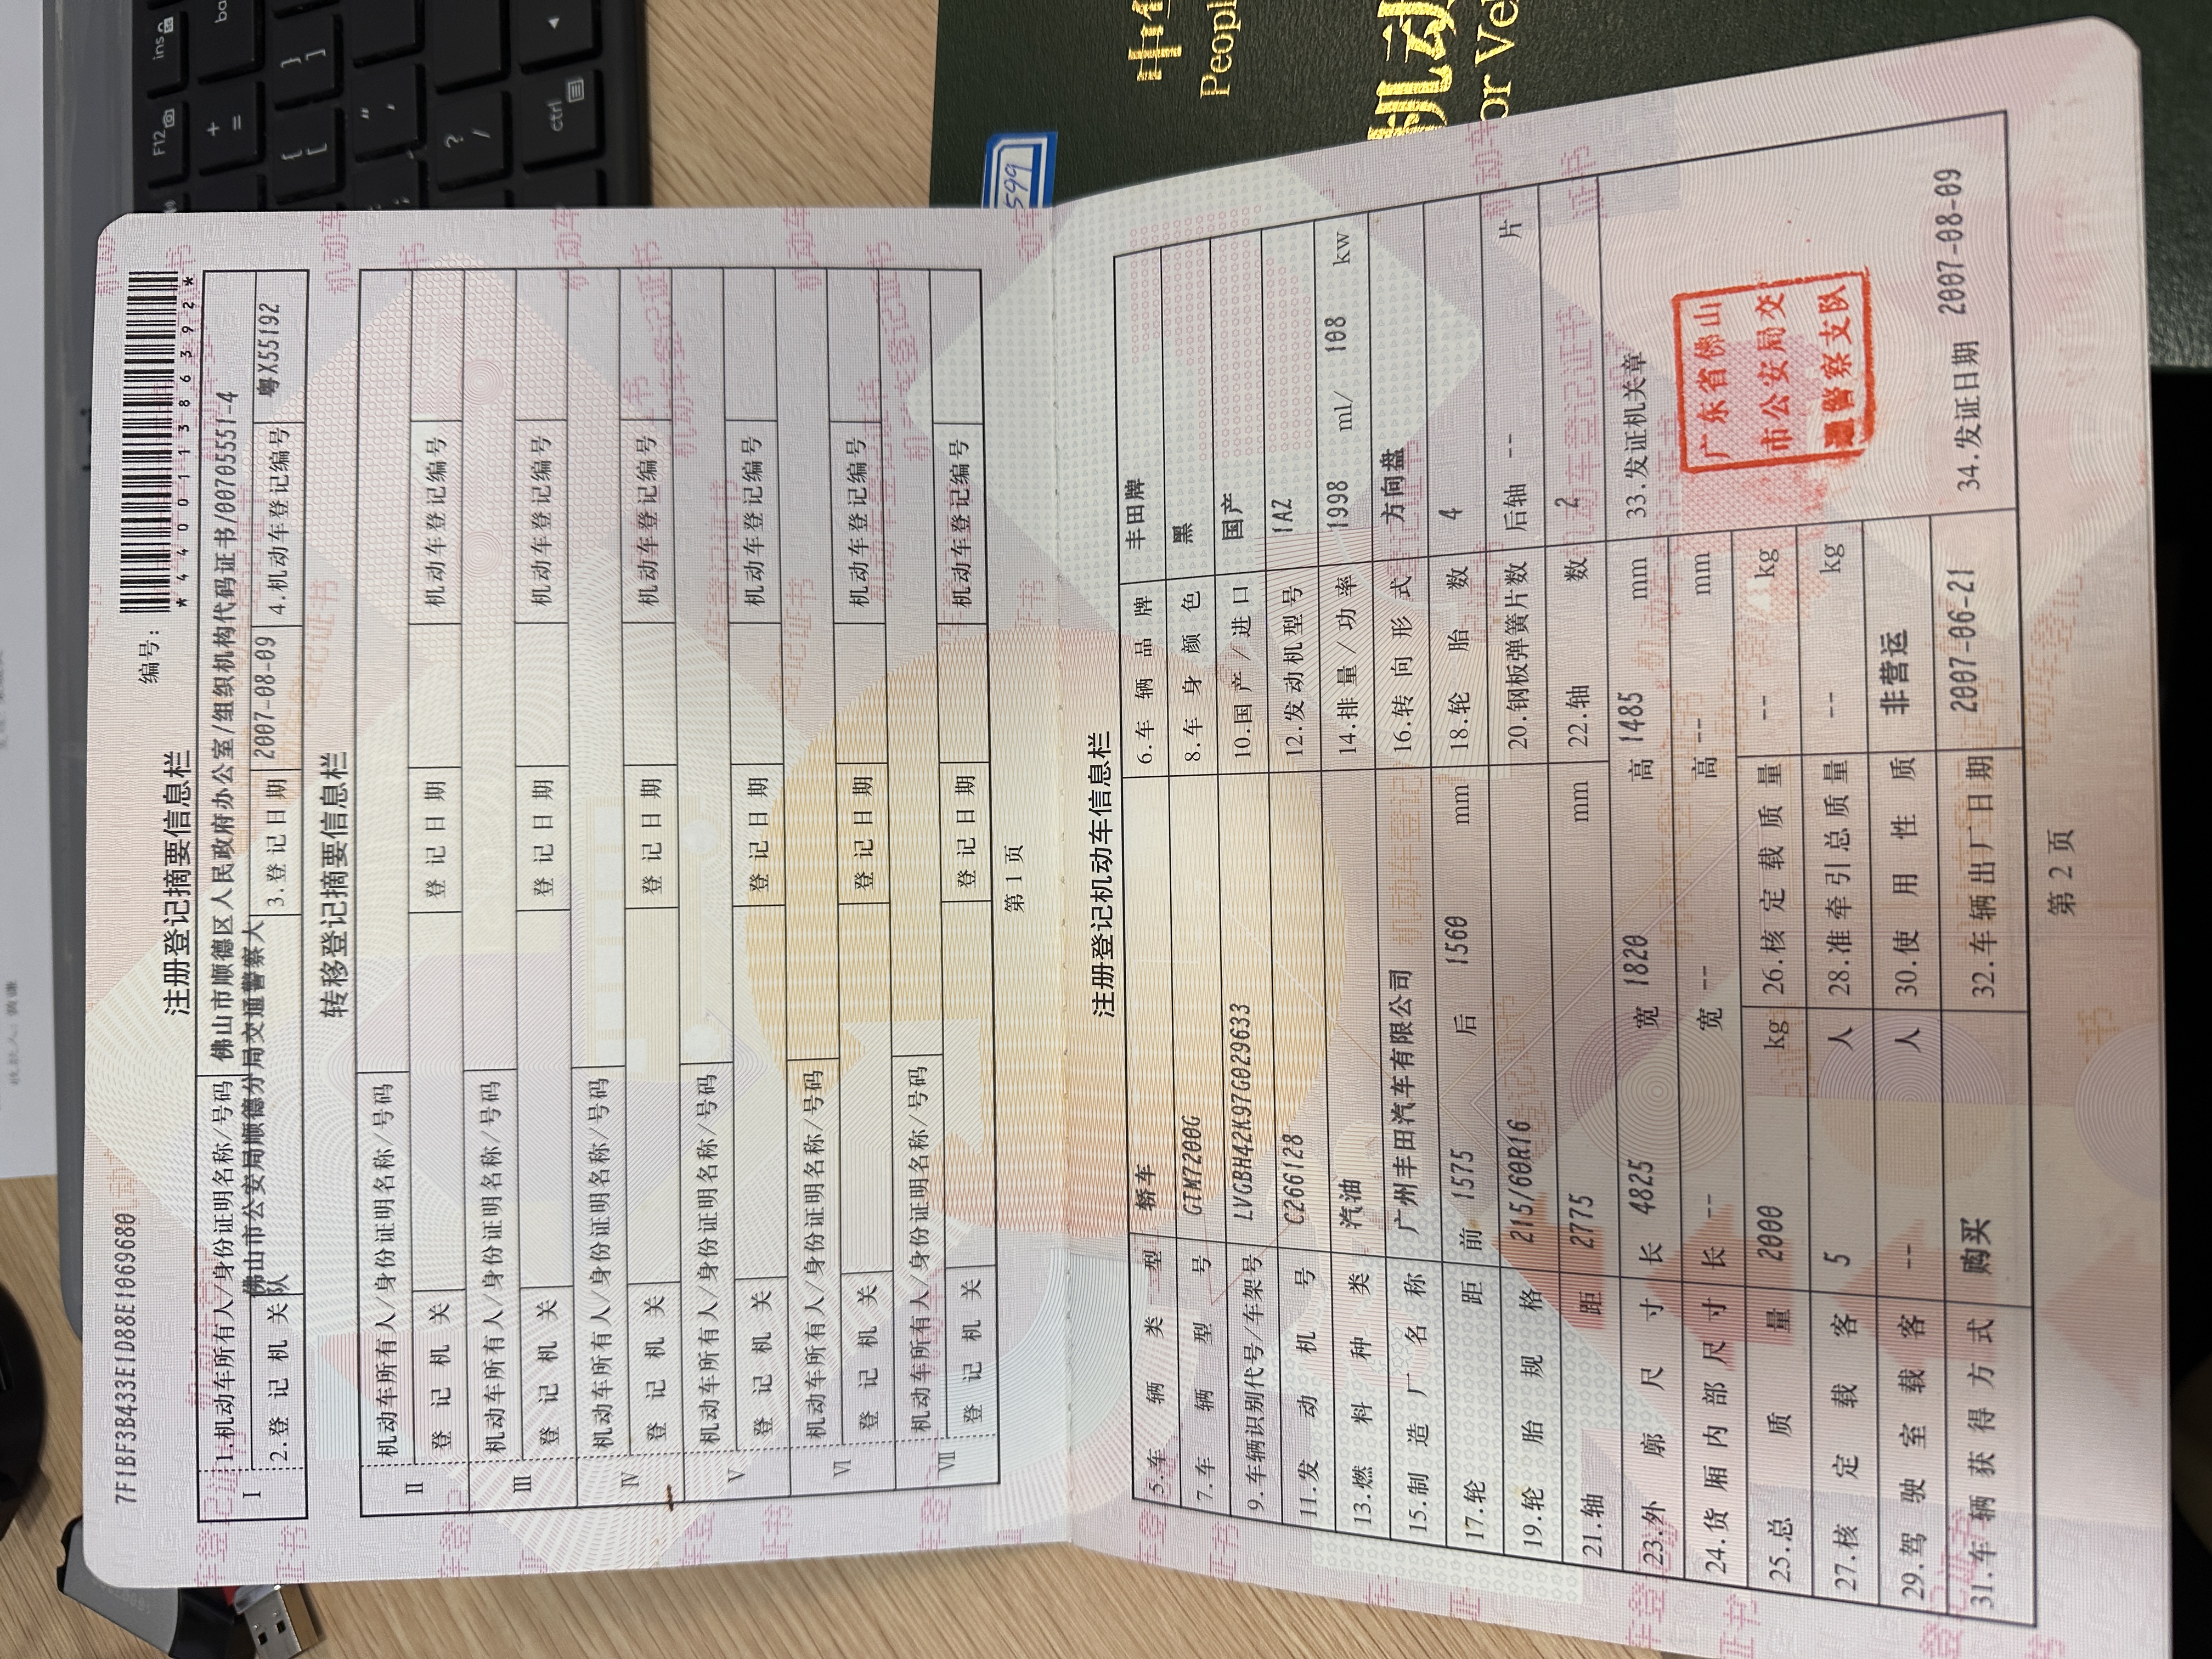 7F1BF3B433E1D88E1069680
注册登记摘要信息栏
编号:
*440011386392*
I
1.机动车所有人/身份证明名称/号码 佛山市顺德区人民政府办公室/组织机构代码证书/00705551-4
2.登记机关 佛山市公安局顺德分局交通警察大队 3.登记日期 2007-08-09 4.机动车登记编号 粤X55192
转移登记摘要信息栏
II
机动车所有人/身份证明名称/号码
登记机关 登记日期 机动车登记编号
III
机动车所有人/身份证明名称/号码
登记机关 登记日期 机动车登记编号
IV
机动车所有人/身份证明名称/号码
登记机关 登记日期 机动车登记编号
V
机动车所有人/身份证明名称/号码
登记机关 登记日期 机动车登记编号
VI
机动车所有人/身份证明名称/号码
登记机关 登记日期 机动车登记编号
VII
机动车所有人/身份证明名称/号码
登记机关 登记日期 机动车登记编号
第1页
注册登记机动车信息栏
5.车辆类型 轿车 6.车辆品牌 丰田牌
7.车辆型号 GTM7200G 8.车身颜色 黑
9.车辆识别代号/车架号 LVGBH42K97G029633 10.国产/进口 国产
11.发动机号 C266128 12.发动机型号 1AZ
13.燃料种类 汽油 14.排量/功率 1998 ml/ 108 kw
15.制造厂名称 广州丰田汽车有限公司 16.转向形式 方向盘
17.轮距 前 1575 后 1560 mm 18.轮胎数 4
19.轮胎规格 215/60R16 20.钢板弹簧片数 后轴 -- 片
21.轴距 2775 mm 22.轴数 2
23.外廓尺寸 长 4825 宽 1820 高 1485 mm
24.货厢内部尺寸 长 -- 宽 -- 高 -- mm
25.总质量 2000 kg 26.核定载质量 -- kg
27.核定载客 5 人 28.准牵引总质量 -- kg
29.驾驶室载客 -- 人 30.使用性质 非营运
31.车辆获得方式 购买 32.车辆出厂日期 2007-06-21
33.发证机关章
广东省佛山
市公安局交
通警察支队
34.发证日期 2007-08-09
第2页
5599
Peopl
机动
or Ve
F12
ins
ctrl